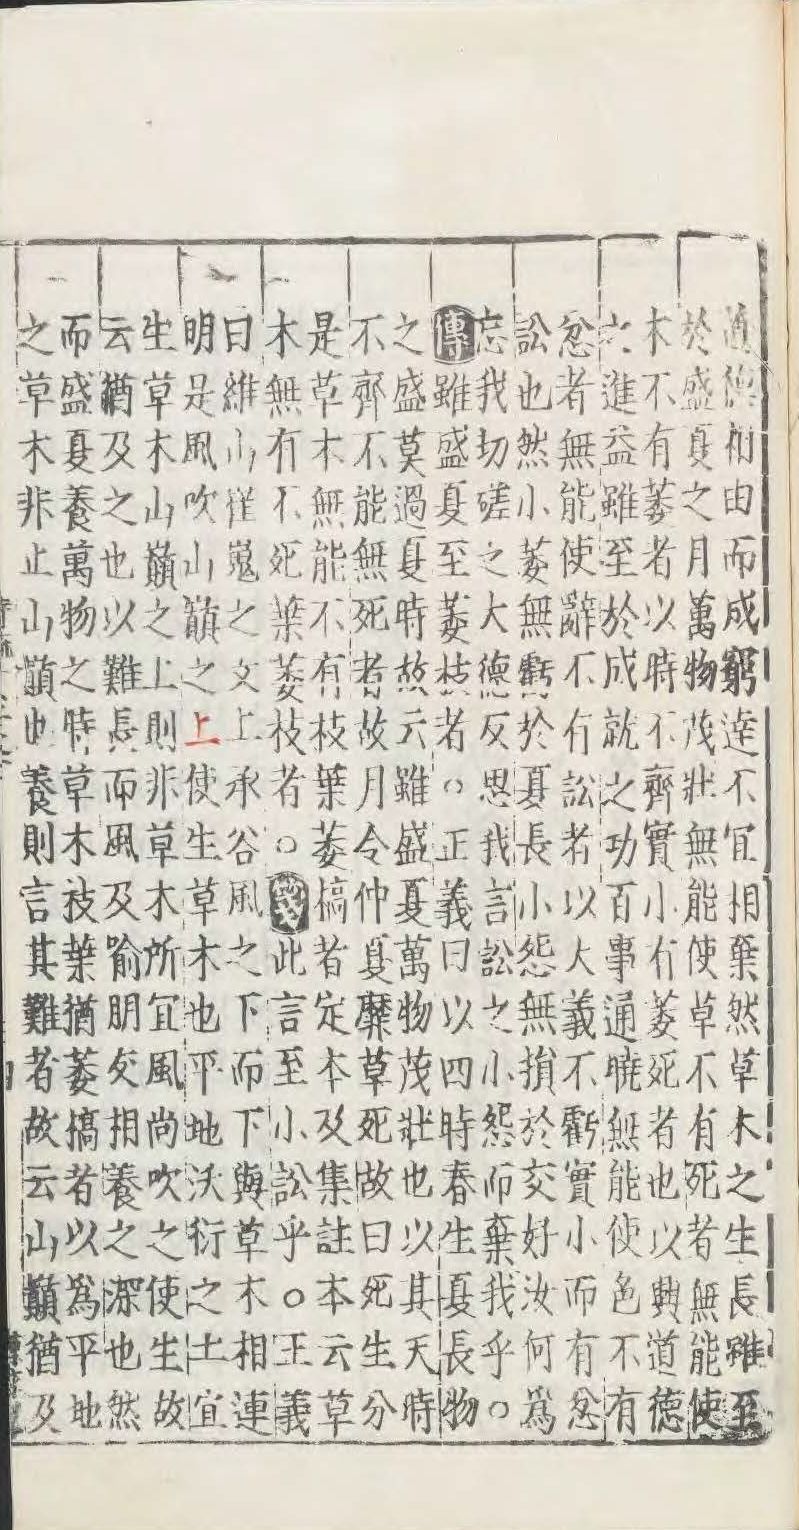 道德相由而成窮達不宜相棄然草木之生長雖至
於盛夏之月萬物茂壯無能使草不有死者無能使
木不有萎者以時不齊實小有萎死者也以興道德
之進益雖至於成就之功百事通曉無能使色不有
忿者無能使辭不有訟者以大義不虧實小而有忿
訟也然小萎無虧於夏長小怨無損於交好汝何爲
忘我切磋之大德反思我言訟之小怨而棄我乎○
傳雖盛夏至萎枝者○正義曰以四時春生夏長物
之盛莫過夏時故云雖盛夏萬物茂壯也以其天時
不齊不能無死者故月令仲夏靡草死故曰死生分
是草木無能不有枝葉萎槁者定本及集註本云草
木無有不死葉萎枝者○箋此言至小訟乎○王義
曰維山崔嵬之文上承谷風之下而下與草木相連
明是風吹山巔之上使生草木也平地沃衍之土宜
生草木山巔之上則非草木所宜風尚吹之使生故
云猶及之也以難長而風及喻朋友相養之深也然
而盛夏養萬物之時草木枝葉猶萎槁者以爲平地
之草木非止山巔也養則言其難者故云山巔猶及